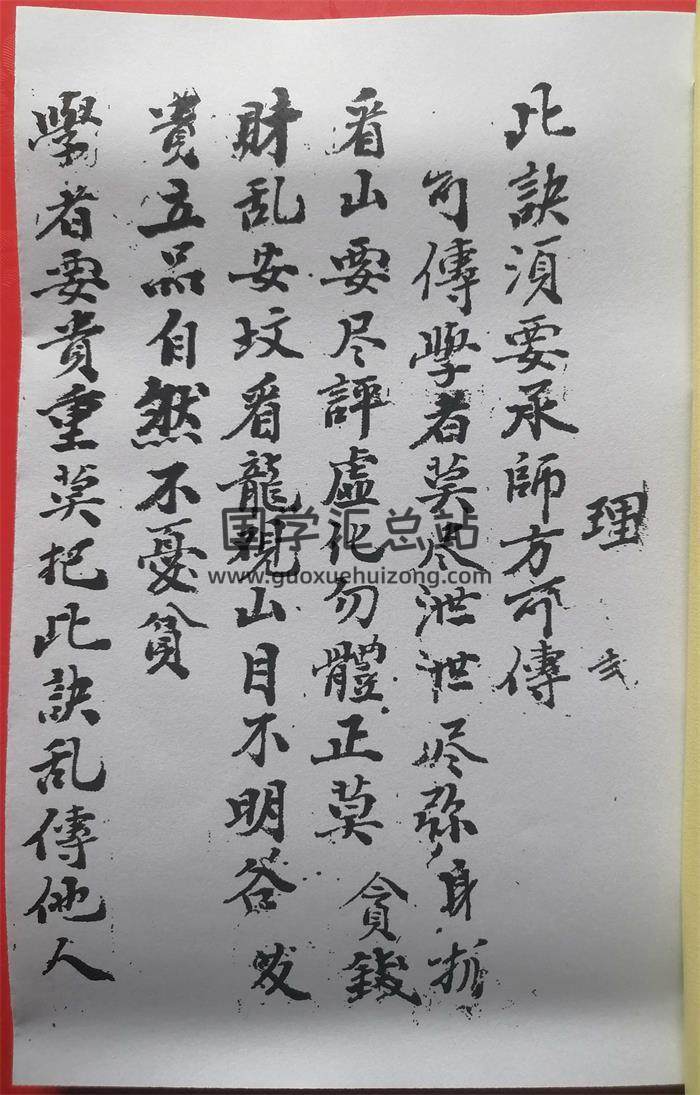 理
玄
此訣須要承師方可傳
句傳學者莫尽泄泄尽弥身折
看山要尽評虚化勿體正莫貪錢
財乱安坟看龍視山目不明谷发
賁五品自然不憂貧
學者要貴重莫把此訣乱傳他人
国学汇总站
www.guoxuehuizong.com